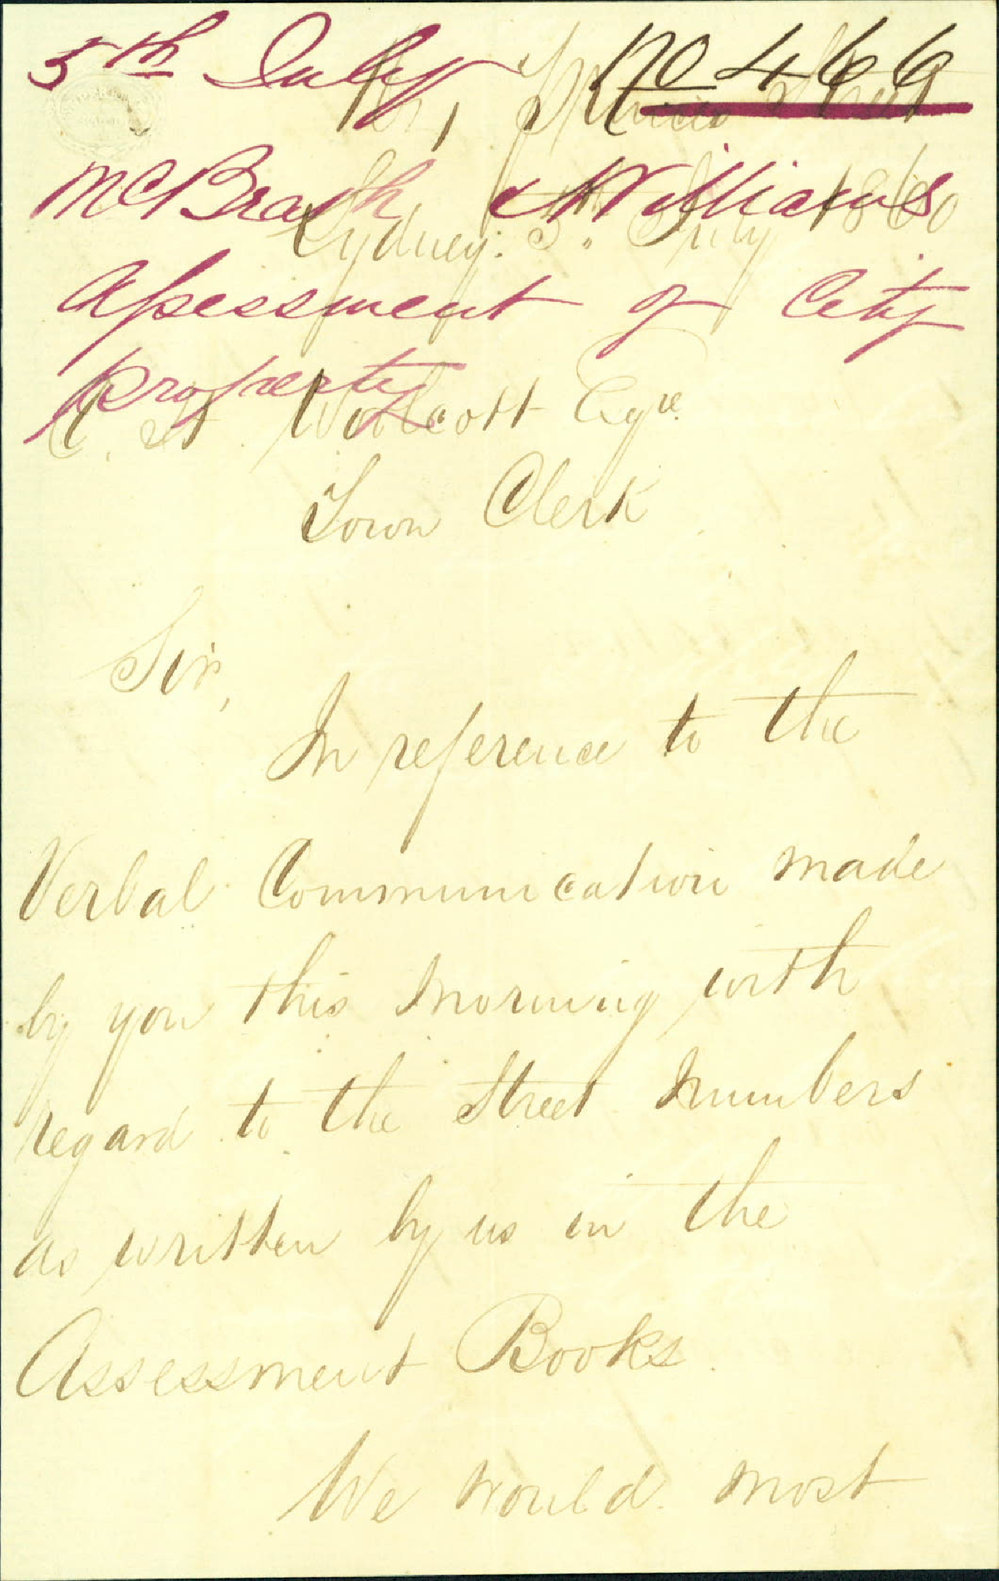 5th July No 466
McBeath & Williams
Sydney. 5. July 1860
Assessment of City
property
C. H. Woolcott Esqre
Town Clerk
Sir,
In reference to the
Verbal Communication made
by you this Morning with
regard to the Street Numbers
as written by us in the
Assessment Books.
We would most